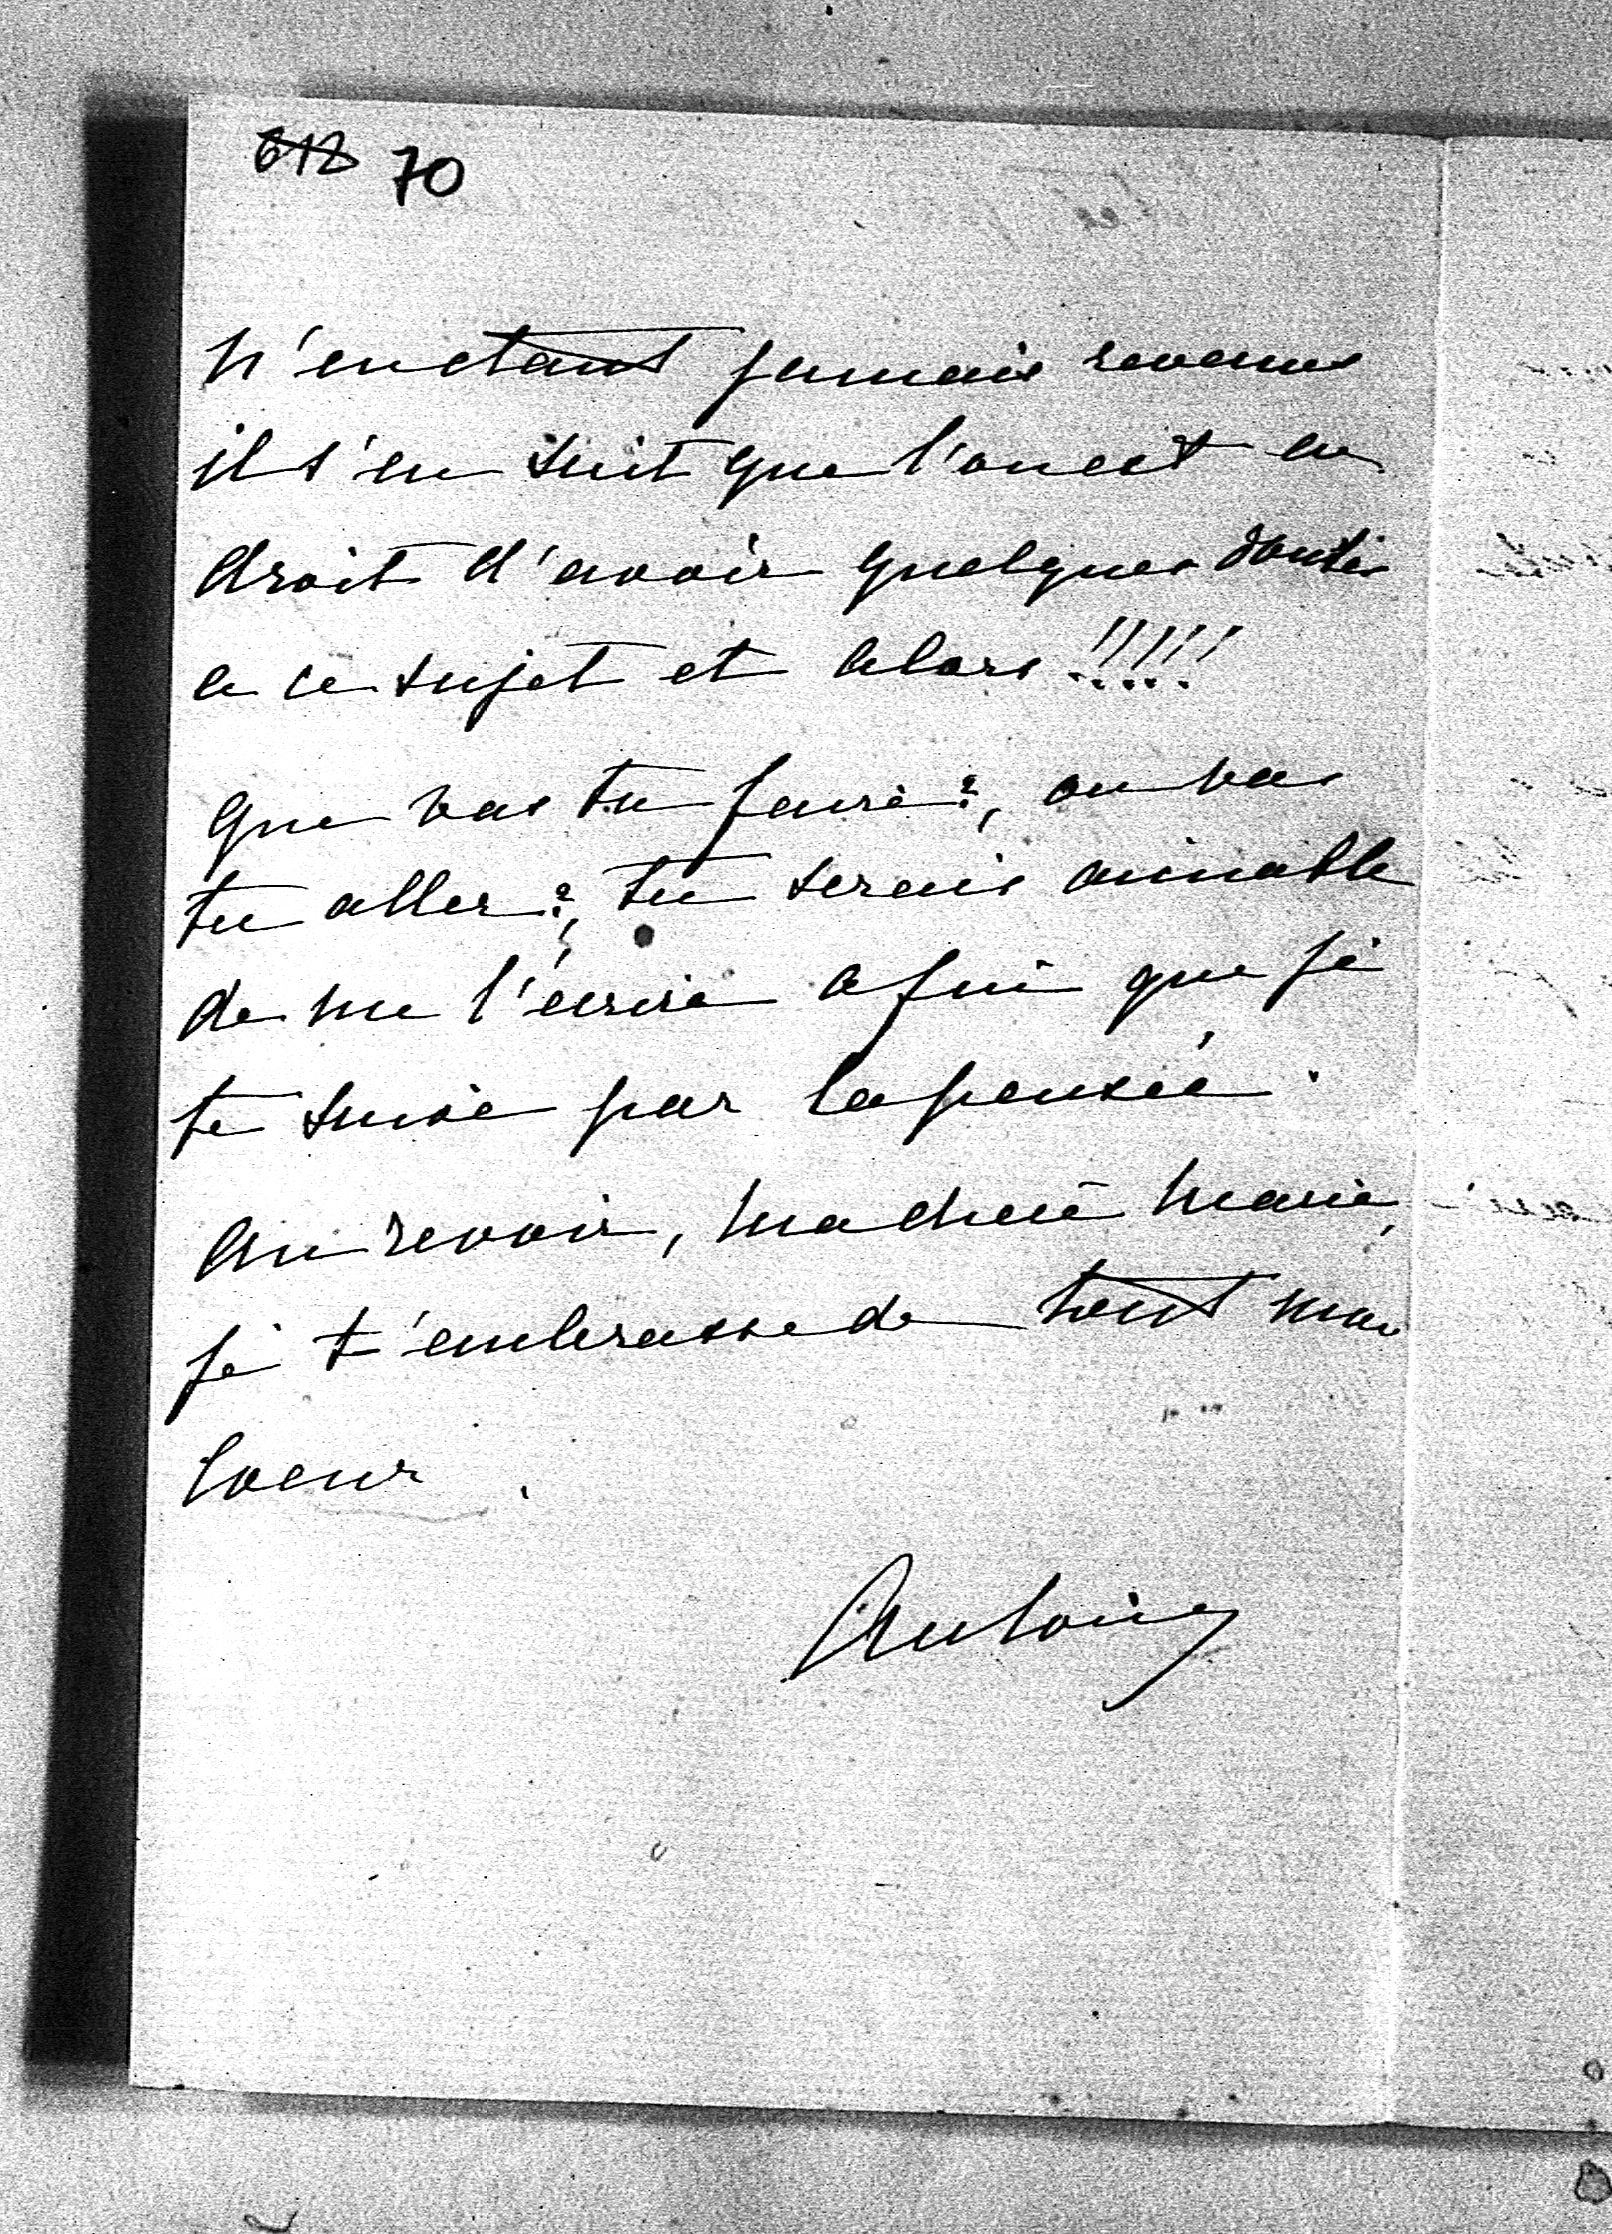 612 70
n'en etant jamais revenus
il s'en suit que l'on est en
droit d'avoir quelques doutes
a ce sujet et alors !!!!!
Que vas tu faire?, ou vas
tu aller?, tu serais aimable
de me l'écrire afin que je
te suive par la pensée.
Au revoir, ma chere Marie,
je t'embrasse de tout mon
Coeur.
Antoine